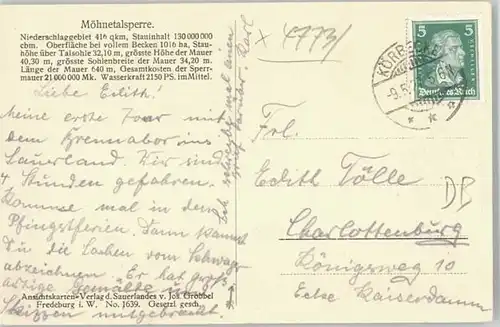 Möhnetalsperre.
Niederschlaggebiet 416 qkm, Stauinhalt 130 000 000
cbm. Oberfläche bei vollem Becken 1016 ha, Stau-
höhe über Talsohle 32,10 m, grösste Höhe der Mauer
40,30 m, grösste Sohlenbreite der Mauer 34,20 m.
Länge der Mauer 640 m, Gesamtkosten der Sperr-
mauer 21 000 000 Mk. Wasserkraft 2150 PS. im Mittel.
Liebe Edith!
Meine erste Tour mit
dem Brennabor ins
Sauerland. Wir sind
4 Stunden gefahren.
Komme mal in den
Pfingstferien. Dann kannst
Du die Sachen vom Schwager
ansehen. Er hat groß-
artige Gemälde und
Skizzen mitgebracht.
Ansichtskarten-Verlag d. Sauerlandes v. Jos. Grobbel
Fredeburg i. W. No. 1639. Gesetzl. gesch.
Ich schreibe mal einen
darüber. Karl
5
5
Deutsches Reich
KÖRBECKE
-9.5.
Frl.
Edith Tölle
Charlottenburg
Königsweg 10
Ecke Kaiserdamm
DB